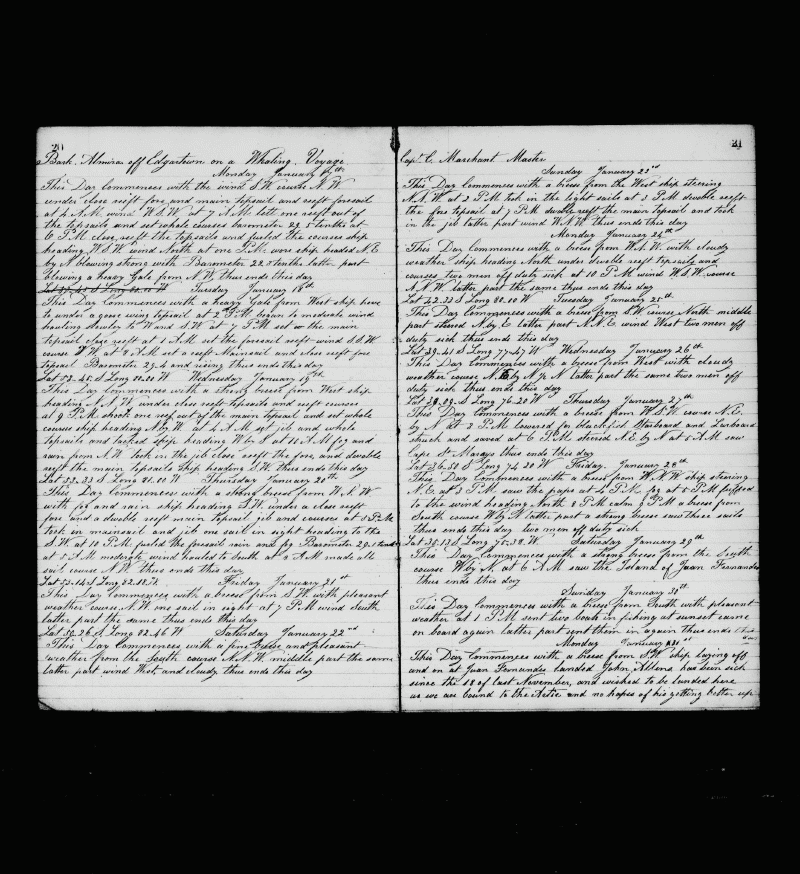 20
Bark Almira off Edgartown on a Whaling Voyage
Monday January 17th
This Day Commences with the wind S W course N.W.
under close reeft fore and main topsail and reeft foresail
at 4 A.M. wind W.S.W. at 7 A.M lett one reeft out of
the topsails and set whole courses barometer 29.5 tenths at
6 P.M close reeft the topsails and furled the courses ship
heading W.S.W. wind North at one P.M. wore ship headed N.E.
by N blowing strong with Barometer 28.8 tenths latter part
blowing a heavy Gale from N.W. thus ends this day
Tuesday January 18th
This Day Commences with a heavy Gale from West ship hove
to under a goose wing topsail at 2 P.M began to moderate wind
hauling slowley to W and S.W. at 7 P.M set the main
topsail close reeft at 1 A.M set the foresail reeft wind S.S.W
course W. at 8 A.M set a reeft Mainsail and close reeft fore
topsail Barometer 29.4 and rising thus ends this day
Lat 53.45 S Long 80.20 W Wednesday January 19th
This Day Commences with a strong breese from West ship
heading N.N.W. under close reeft topsails and reeft courses
at 9 P.M. shook one reef out of the main topsail and set whole
course ship heading N by W at 4 A.M set jib and whole
topsails and tacked ship heading W by S at 10 A.M fog and
rain from N.W. took in the jib close reeft the fore, and dwoble
reeft the main topsails Ship heading S.W. thus ends this day
Lat 53.33 S Long 81.00 W Thursday January 20th
This Day Commences with a strong breese from W.N.W
with fog and rain ship heading S.W. under a close reeft
fore and a dwoble reeft main topsail jib and courses at 5 P.M
took in mainsail and jib one sail in sight heading to the
S.W. at 10 P.M. furled the foresail rain and fog Barometer 29.2 tenths
at 5 A.M moderate wind hauled to South at 9 A.M made all
sail course N.W. thus ends this day
Lat 53.14 S Long 82.10 W. Friday January 21st
This Day Commences with a breese from S.W. with pleasant
weather course N.W. one sail in sight at 7 P.M wind South
latter part the same thus ends this day
Lat 50.26 S Long 82.46 W Saturday January 22nd
This Day Commences with a fine breese and pleasant
weather from the South course N.N.W. middle part the same
latter part wind West, and cloudy thus ends this day
21
Capt C. Marchant Master
Sunday January 23rd
This Day Commences with a breese from the West ship steering
N.N.W. at 2 P.M took in the light sails at 3 P.M dwoble reeft
the fore topsail at 7 P.M dwoble reeft the main topsail and took
in the jib latter part wind W.N.W. thus ends this day
Monday January 24th
This Day Commences with a breese from W.N.W. with cloudy
weather ship heading North under dwoble reeft topsails and
courses two men off duty sick at 10 P.M wind W.S.W. course
N.N.W. latter part the same thus ends this day
Lat 42.33 S Long 80.00 W Tuesday January 25th
This Day Commences with a breese from S.W. course North middle
part steered N by E latter part N.N.E. wind West two men off
duty sick thus ends this day
Lat 39.41 S Long 77.47 W Wednesday January 26th
This Day Commences with a breese from West with cloudy
weather course N.E. by N ½ N latter part the same two men off
duty sick thus ends this day
Lat 38.09 S Long 76.20 W Thursday January 27th
This Day Commences with a breese from W.S.W. course N.E.
by N at 3 P.M lowered for blackfish Starboard and Larboard
struck and saved at 6 P.M steered N.E. by N at 5 A.M saw
Cape St Marys thus ends this day
Lat 36.50 S Long 74.20 W Friday January 28th
This Day Commences with a breese from W.N.W. ship steering
N.E. at 3 P.M saw the paps at 4 P.M. fog at 5 P.M luffed
to the wind heading North 8 P.M calm 9 P.M a breese from
South course W by N latter part a strong breese saw three sails
thus ends this day two men off duty sick
Lat 35.13 S Long 75.38 W. Saturday January 29th
This Day Commences with a strong breese from the South
course W by N. at 6 A.M saw the Island of Juan Fernandes
thus ends this day
Sunday January 30th
This Day Commences with a breese from South with pleasant
weather at 1 P.M sent two boats in fishing at sunset came
on board again latter part sent them in again thus ends this
day
Monday January 31st
This Day Commences with a breese from S.W. ship laying off
and on at Juan Fernandes landed John Allens has been sick
since the 18 of last November, and wished to be landed here
as we are bound to the Artic and no hopes of his getting better up